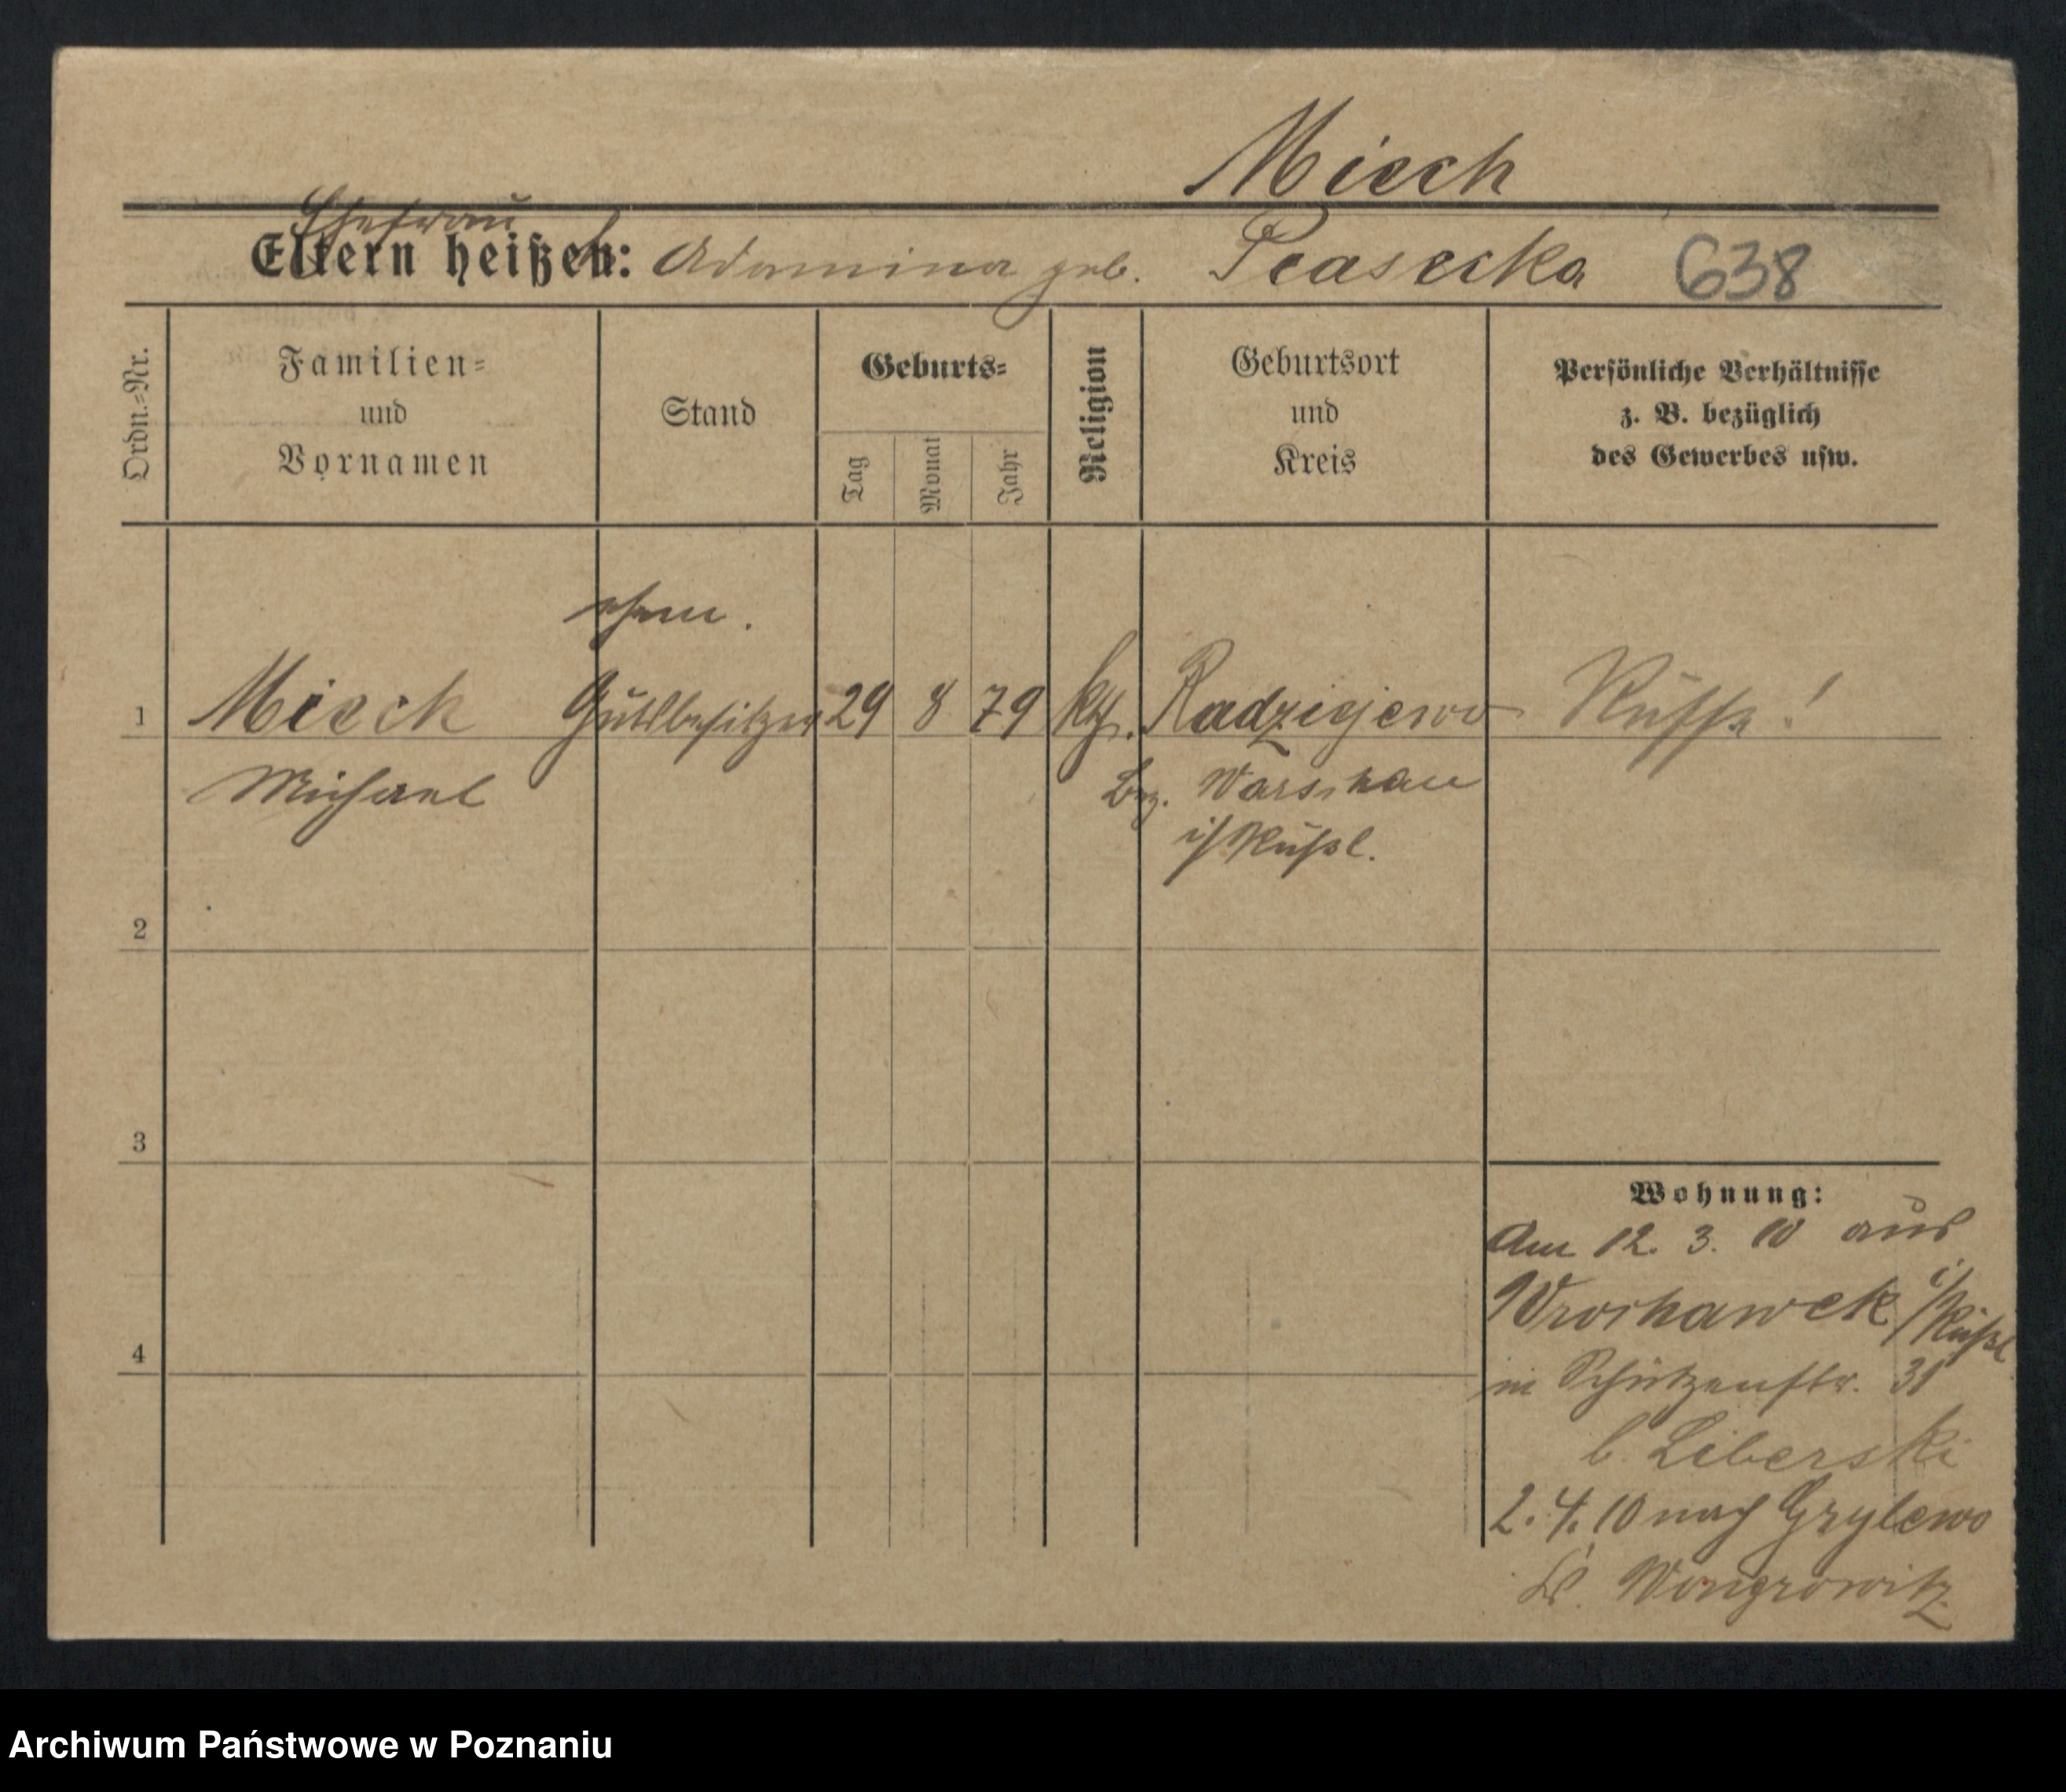 Miech
Ehefrau
Eltern heißen: Adamina geb. Peasecka 638
Ordn.-Nr.
Familien-
und
Vornamen
Stand
Geburts-
Tag
Monat
Jahr
Religion
Geburtsort
und
Kreis
Persönliche Verhältnisse
z. B. bezüglich
des Gewerbes usw.
ehem.
1 Miech Gutsbesitzer 29 8 79 kth. Radziejewo Russe!
Michael Bez. Warschau
i/Rußl.
2
3
4
Wohnung:
Am 12. 3. 10 aus
i/Rußl
in Schützenstr. 31
b. Liberski
2. 4. 10 nach Grylewo
Kr. Wongrowitz
Archiwum Państwowe w Poznaniu